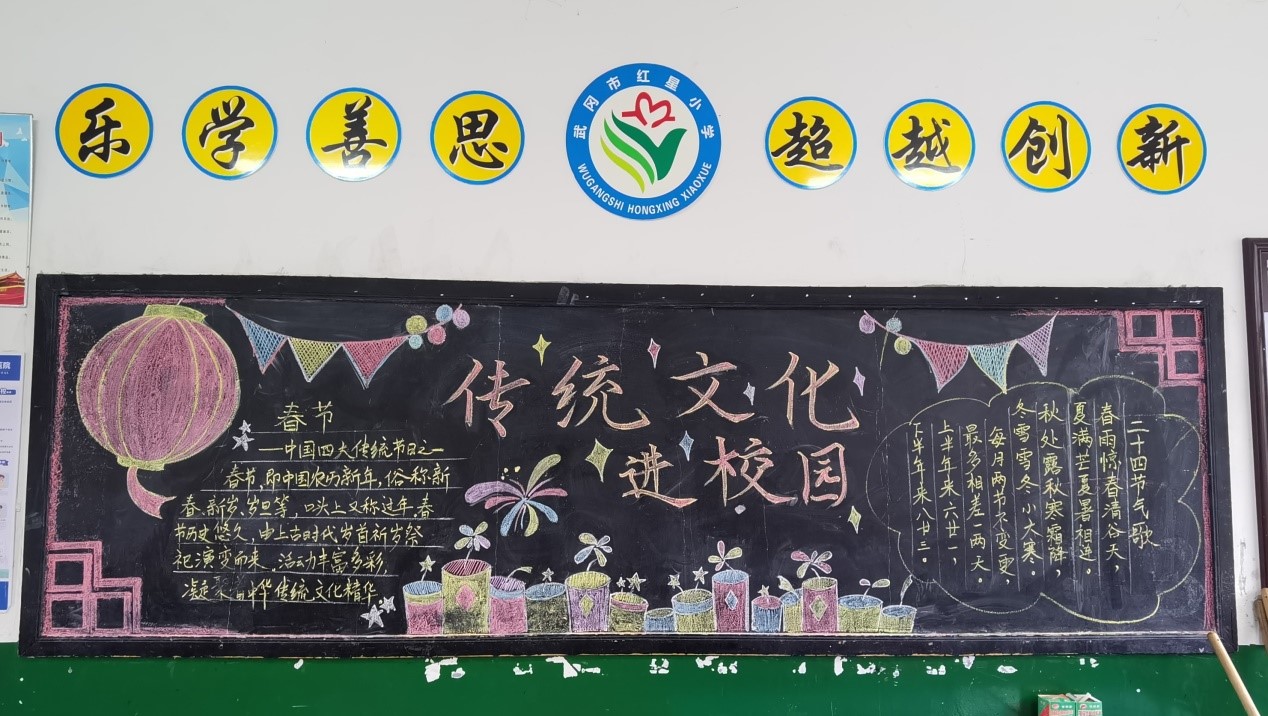 乐学善思
武冈市红星小学
WUGANGSHI HONGXING XIAOXUE
超越创新
传统文化
进校园
春节
——中国四大传统节日之一
春节,即中国农历新年,俗称新
春、新岁、岁旦等,口头上又称过年,春
节历史悠久,由上古时代岁首祈岁祭
祀演变而来,活动丰富多彩,
凝 中华传统文化精华
二十四节气歌
春雨惊春清谷天,
夏满芒夏暑相连。
秋处露秋寒霜降,
冬雪雪冬小大寒。
每月两节不变更,
最多相差一两天。
上半年来六廿一,
下半年来八廿三。